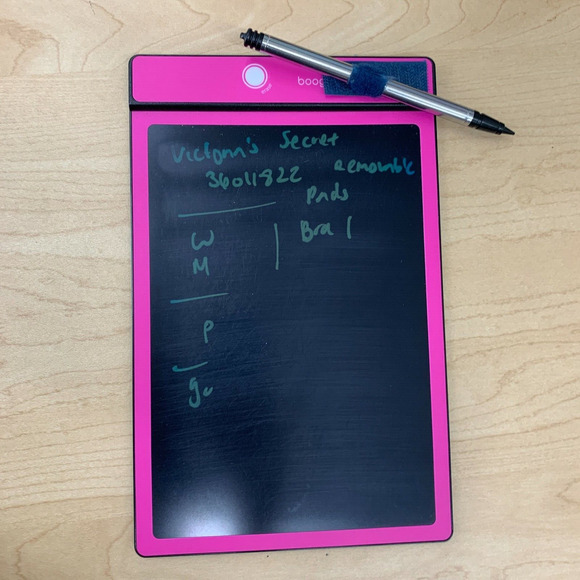 erase
boog
Victoria's Secret
36011822 Removable
Pads
Bra |
W
M
P
go